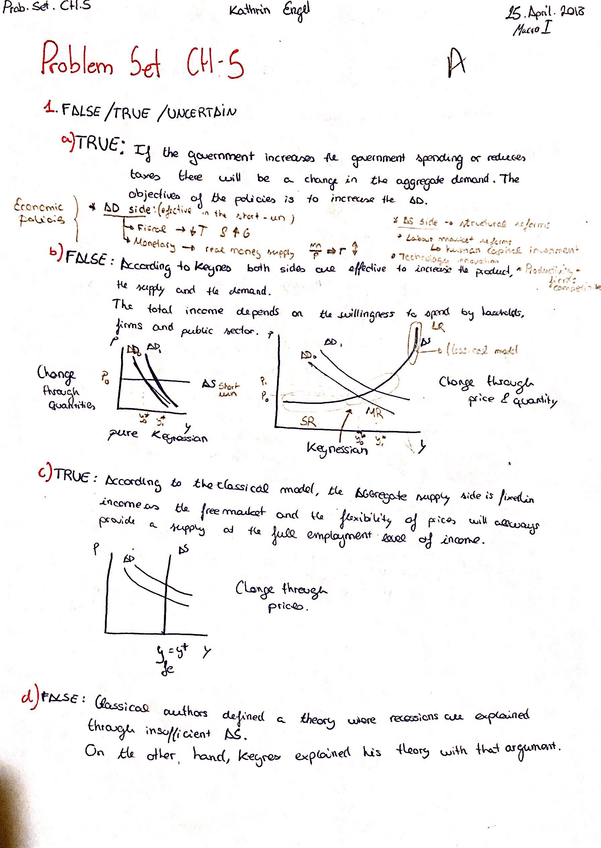 Prob. Set. CH.5
Kathrin Engel
25. April. 2018
Macro I
Problem Set CH.5
A
1. FALSE/TRUE/UNCERTAIN
a) TRUE: If the government increases the government spending or reduces
taxes there will be a change in the aggregate demand. The
objectives of the policies is to increase the AD.
Economic policies
* AD side: (efective in the short-run)
→ Fiscal → ↓T ↑G
→ Monetary → real money supply
* AS side → structural reforms
• Labour market reforms
↳ human capital invesment
• Technology innovation
• Productivity
b) FALSE: According to Keynes both sides are effective to increase the product,
the supply and the demand.
The total income depends on the willingness to spend by housholds,
firms and public sector.
Change through Quantities
P
AD₀ AD₁
P₀
AS short run
y₀* y₁* y
pure Keynessian
P
AD₀ AD₁
LR
AS
classical model
P₁
P₀
SR
MR
y₀* y₁* y
Keynessian
Change through
price & quantity
c) TRUE: According to the classical model, the Aggregate supply side is fixed in
income as the free market and the flexibility of prices will allways
provide a supply at the full employment level of income.
P
AD
AS
y = y* y
fe
Change through
prices.
d) FALSE: Classical authors defined a theory were recessions are explained
through insufficient AS.
On the other, hand, Keynes explained his theory with that argument.